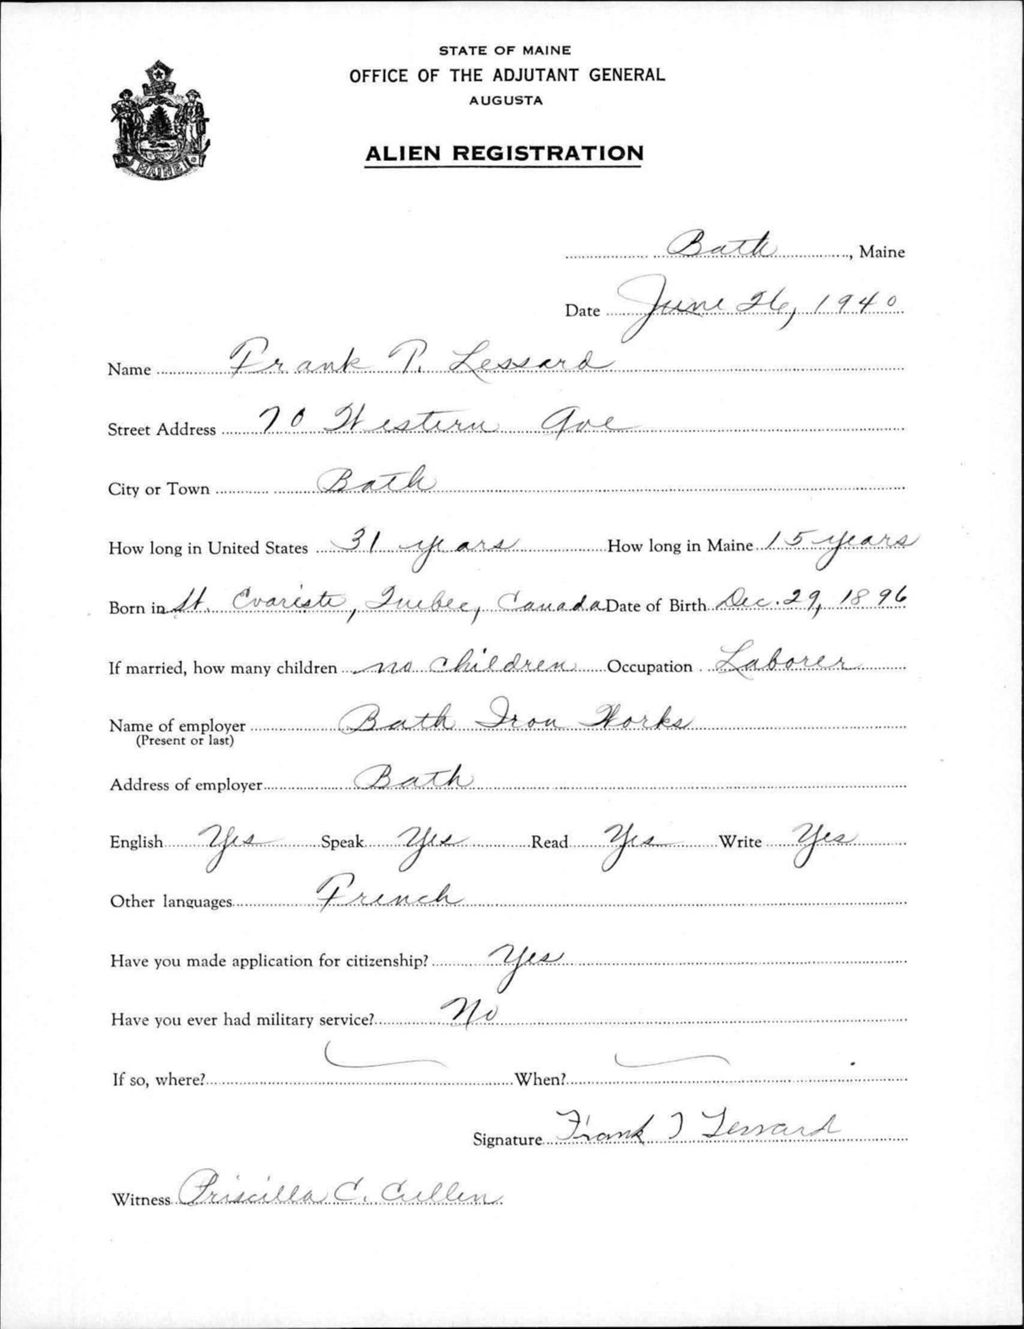 STATE OF MAINE
OFFICE OF THE ADJUTANT GENERAL
AUGUSTA
ALIEN REGISTRATION
MAINE
Bath, Maine
Date June 26, 1940
Name Frank P. Lessard
Street Address 70 Western Ave
City or Town Bath
How long in United States 31 years How long in Maine 15 years
Born in St. Evariste, Quebec, Canada Date of Birth Dec. 29, 1896
If married, how many children no children Occupation Laborer
Name of employer Bath Iron Works
(Present or last)
Address of employer Bath
English Yes Speak Yes Read Yes Write Yes
Other languages French
Have you made application for citizenship? Yes
Have you ever had military service? No
If so, where? When?
Signature Frank Lessard
Witness Priscilla C. Cullen